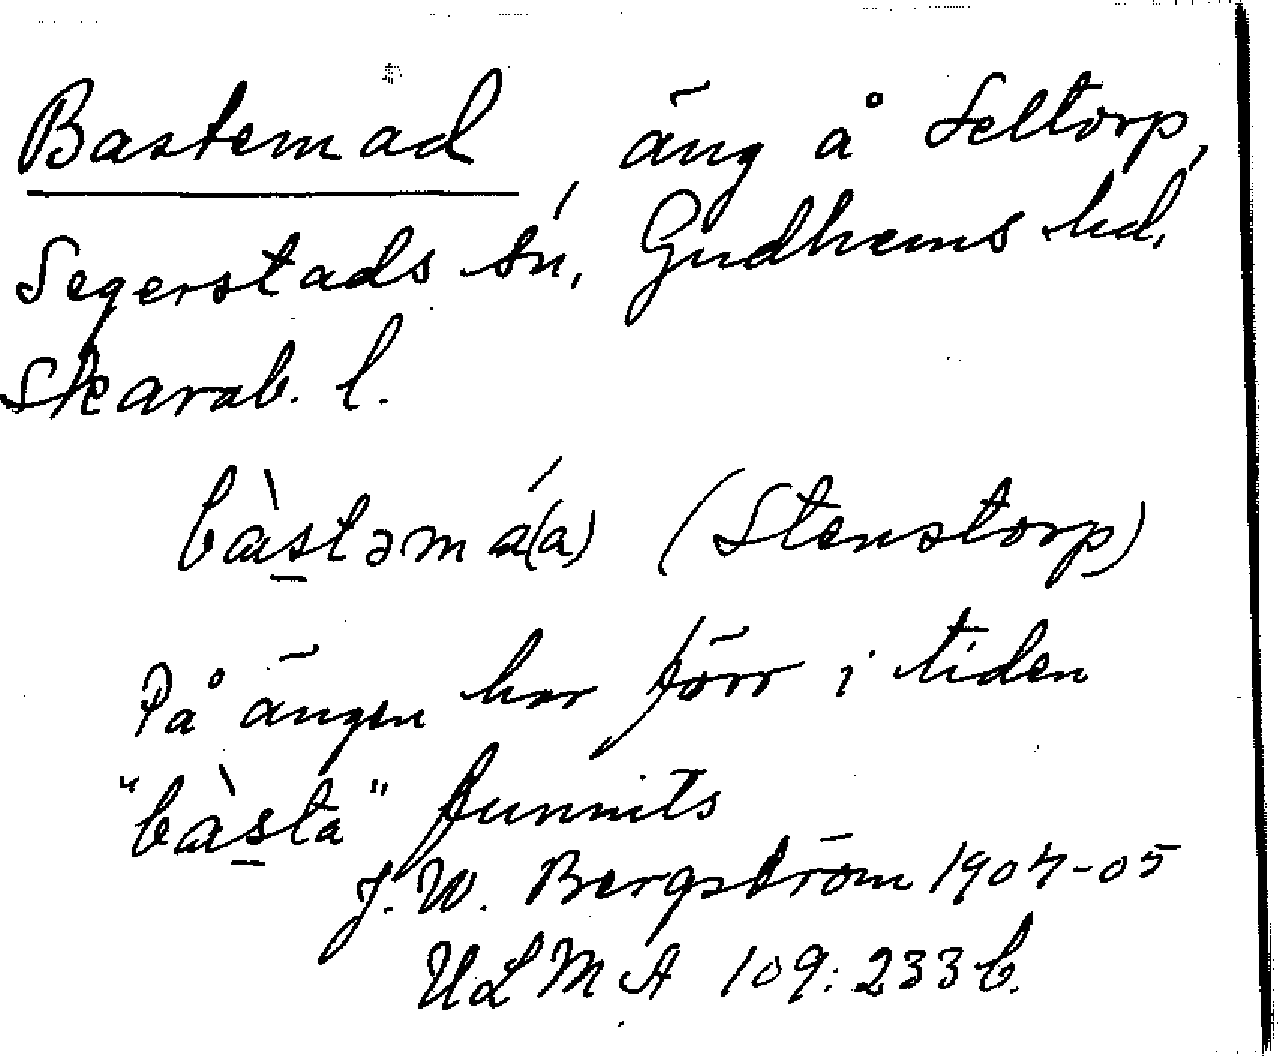 Bastemad, äng å Seltorp,
Segerstads sn, Gudhems hd,
Skarab. l.
bàstəmá(a) (Stenstorp)
På ängen har förr i tiden
"bàsta" funnits
J. W. Bergström 1904-05
ULMA 109:233 b.